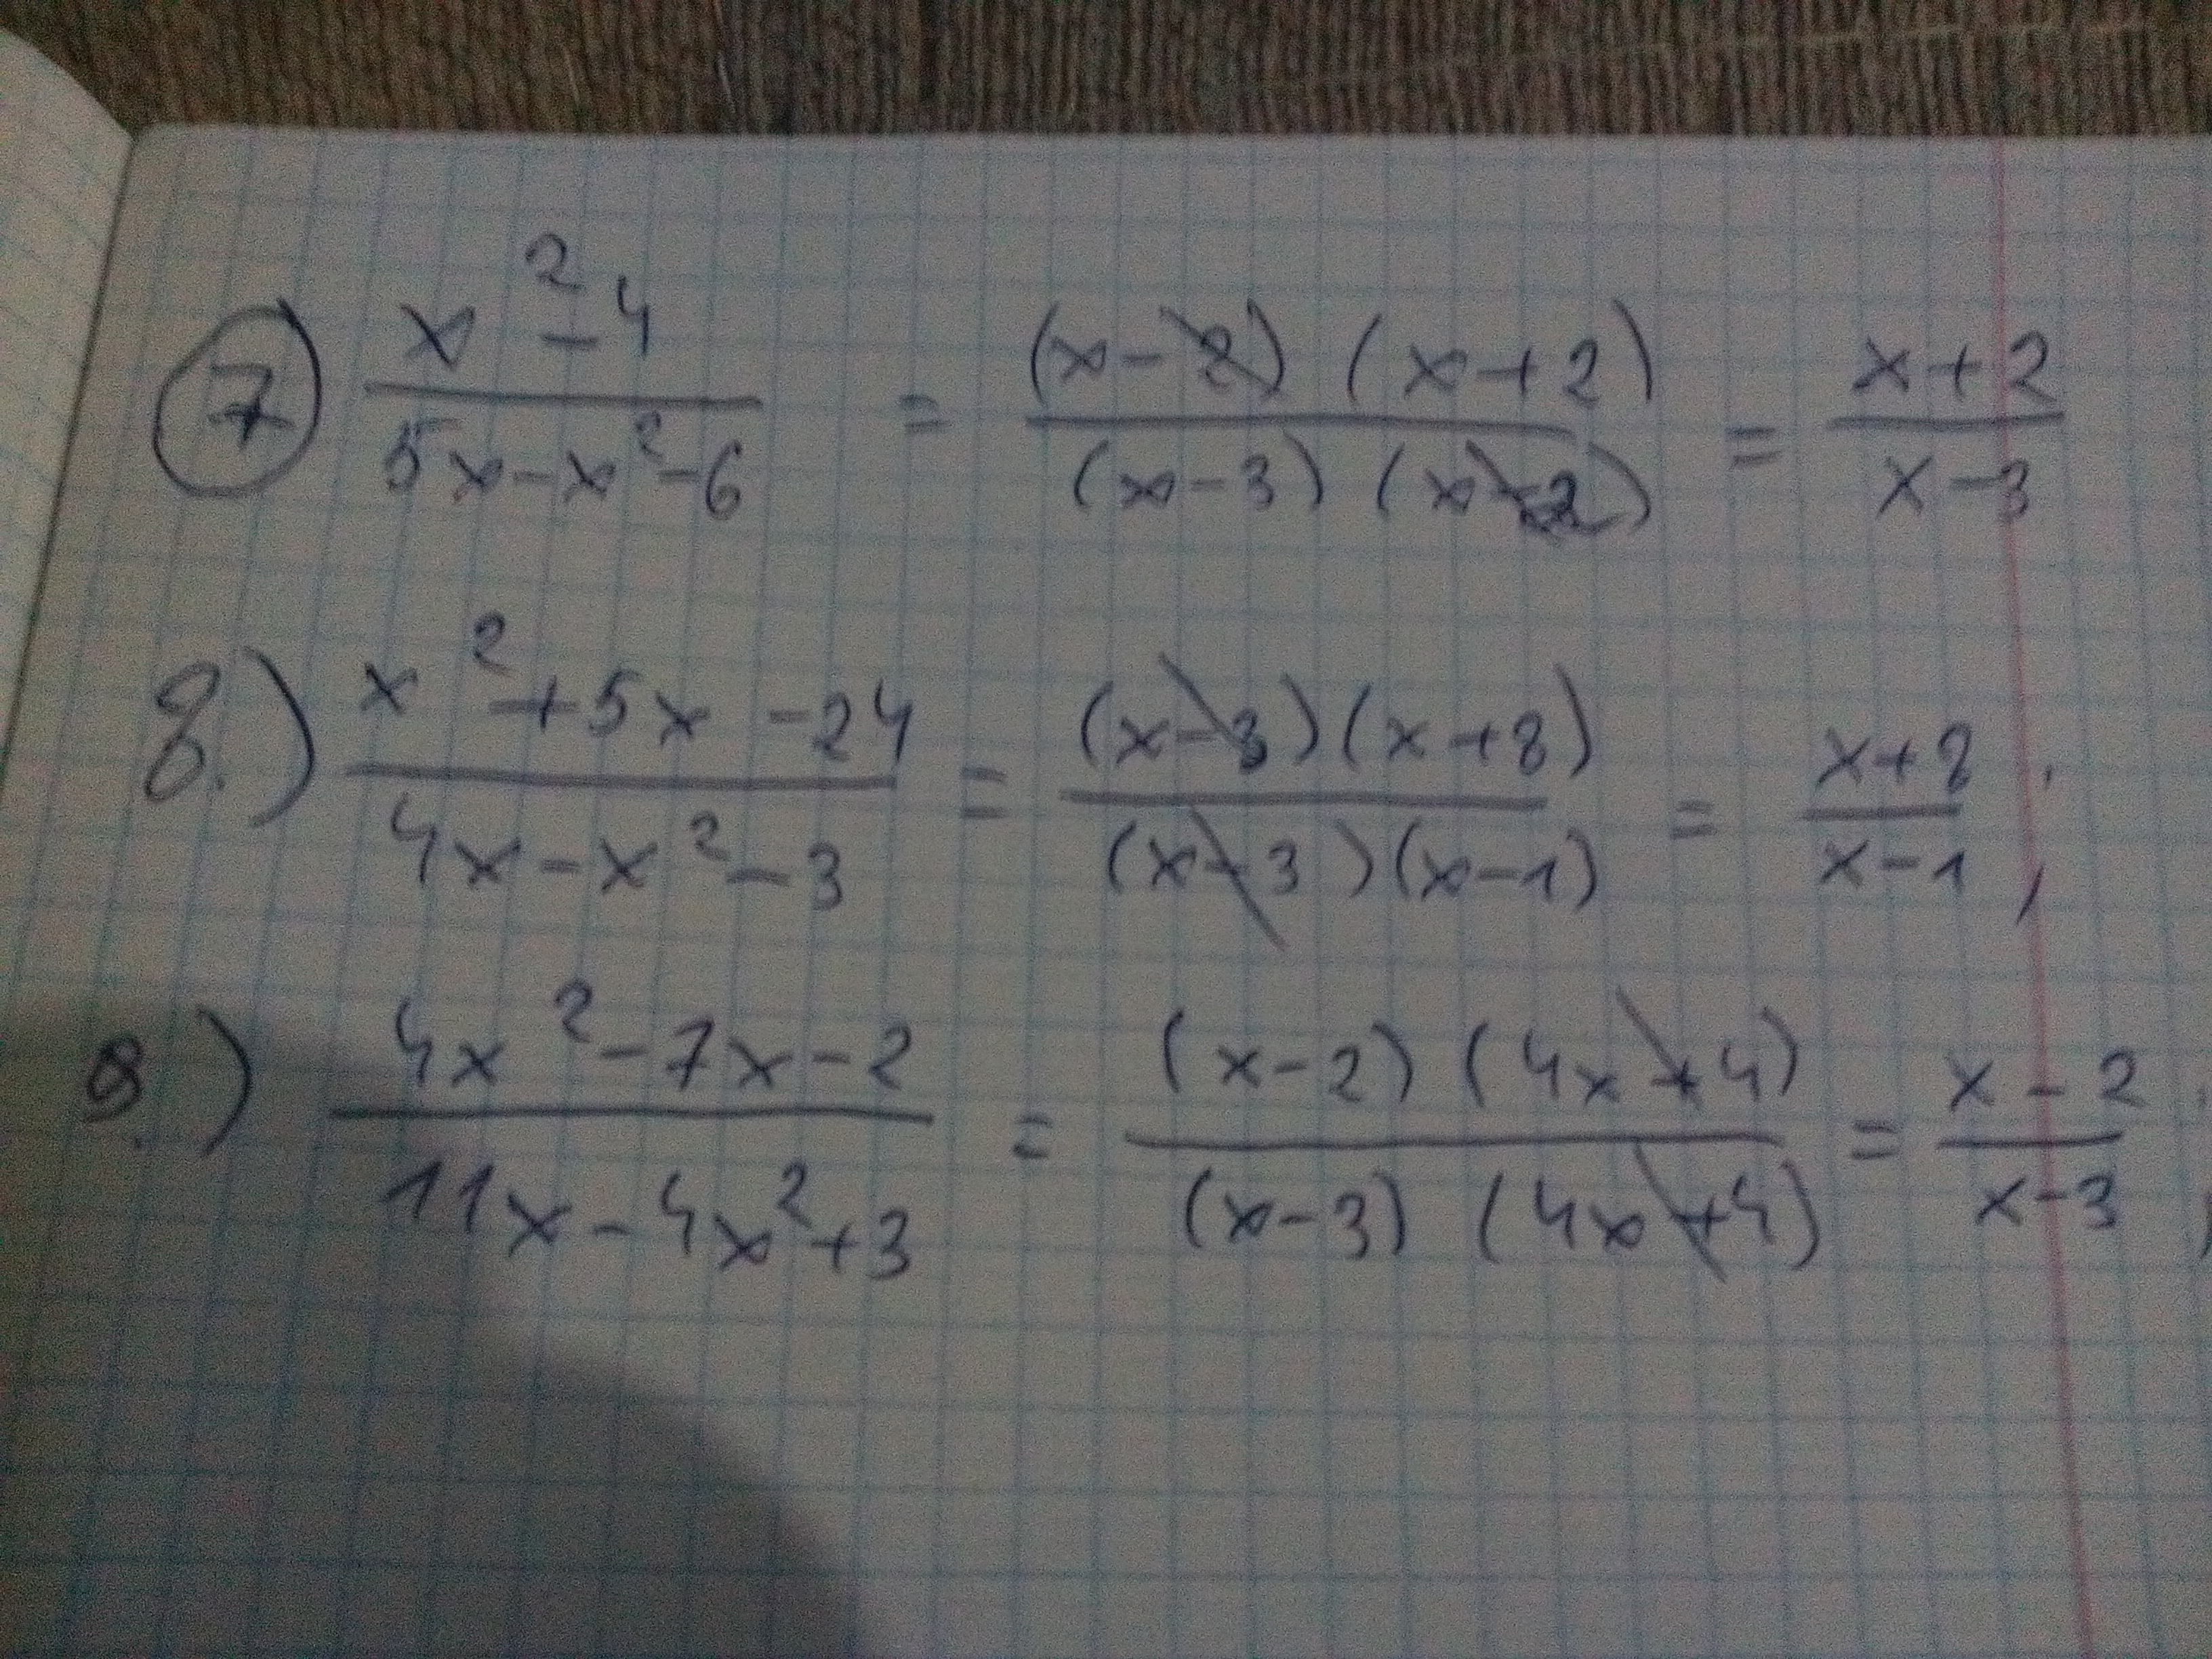 7 (x² - 4)/(5x - x² - 6) = ((x - 2)(x + 2))/((x - 3)(x - 2)) = (x + 2)/(x - 3)
8.) (x² + 5x - 24)/(4x - x² - 3) = ((x - 3)(x + 8))/((x - 3)(x - 1)) = (x + 8)/(x - 1);
9.) (4x² - 7x - 2)/(11x - 4x² + 3) = ((x - 2)(4x + 4))/((x - 3)(4x + 4)) = (x - 2)/(x - 3);